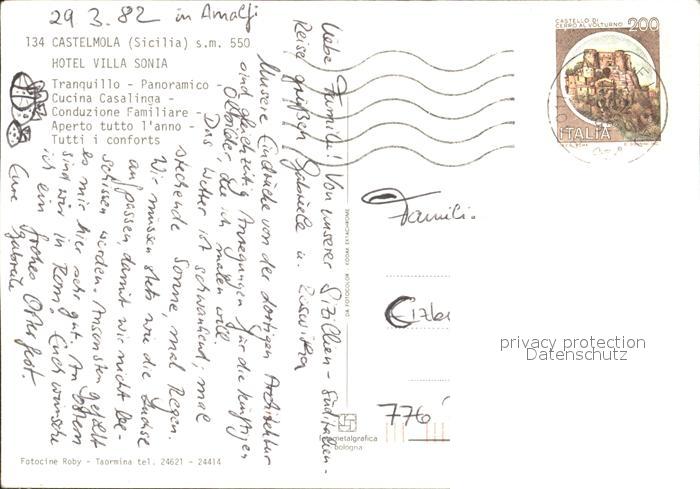 29 3. 82 in Amalfi
134 CASTELMOLA (Sicilia) s.m. 550
HOTEL VILLA SONIA
Tranquillo - Panoramico -
Cucina Casalinga -
Conduzione Familiare -
Aperto tutto l'anno -
Tutti i conforts
Liebe Familie! Von unserer Sizilien-Süditalien-
Reise grüßen Gabriele u. Roswitha
Unsere Eindrücke von der dortigen Architektur
sind gleichzeitig Anregungen für die künftigen
Ölbilder, die ich malen will.
Das Wetter ist schwankend; mal
stechende Sonne, mal Regen.
Wir müssen stets wie die Luchse
aufpassen, damit wir nicht be-
schissen werden. Ansonsten gefällt
es mir hier sehr gut. An Ostern
sind wir in Rom. Euch wünsche
ich ein frohes Osterfest.
Eure Gabriele
CASTELLO DI
CERRO AL VOLTURNO
200
ITALIA
Famili
776
DA FOTOCOLOR KODAK EKTACHROME
fotometalgrafica
bologna
Fotocine Roby - Taormina tel. 24621 - 24414
privacy protection
Datenschutz